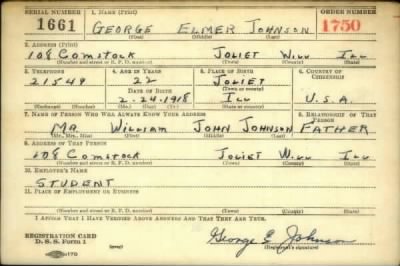 SERIAL NUMBER 1. NAME (Print) ORDER NUMBER
1661 GEORGE ELMER JOHNSON 1750
(First) (Middle) (Last)
2. ADDRESS (Print)
108 COMSTOCK JOLIET WILL ILL
(Number and street or R. F. D. number) (Town) (County) (State)
3. TELEPHONE 4. AGE IN YEARS 5. PLACE OF BIRTH 6. COUNTRY OF CITIZENSHIP
21549 22 JOLIET
DATE OF BIRTH (Town or county)
2-24-1918 ILL U.S.A.
(Exchange) (Number) (Mo.) (Day) (Yr.) (State or country)
7. NAME OF PERSON WHO WILL ALWAYS KNOW YOUR ADDRESS 8. RELATIONSHIP OF THAT PERSON
MR. WILLIAM JOHN JOHNSON FATHER
(Mr., Mrs., Miss) (First) (Middle) (Last)
9. ADDRESS OF THAT PERSON
108 COMSTOCK JOLIET WILL ILL
(Number and street or R. F. D. number) (Town) (County) (State)
10. EMPLOYER'S NAME
STUDENT
11. PLACE OF EMPLOYMENT OR BUSINESS
(Number and street or R. F. D. number) (Town) (County) (State)
I AFFIRM THAT I HAVE VERIFIED ABOVE ANSWERS AND THAT THEY ARE TRUE.
REGISTRATION CARD
D. S. S. Form 1 George E. Johnson
(Registrant's signature)